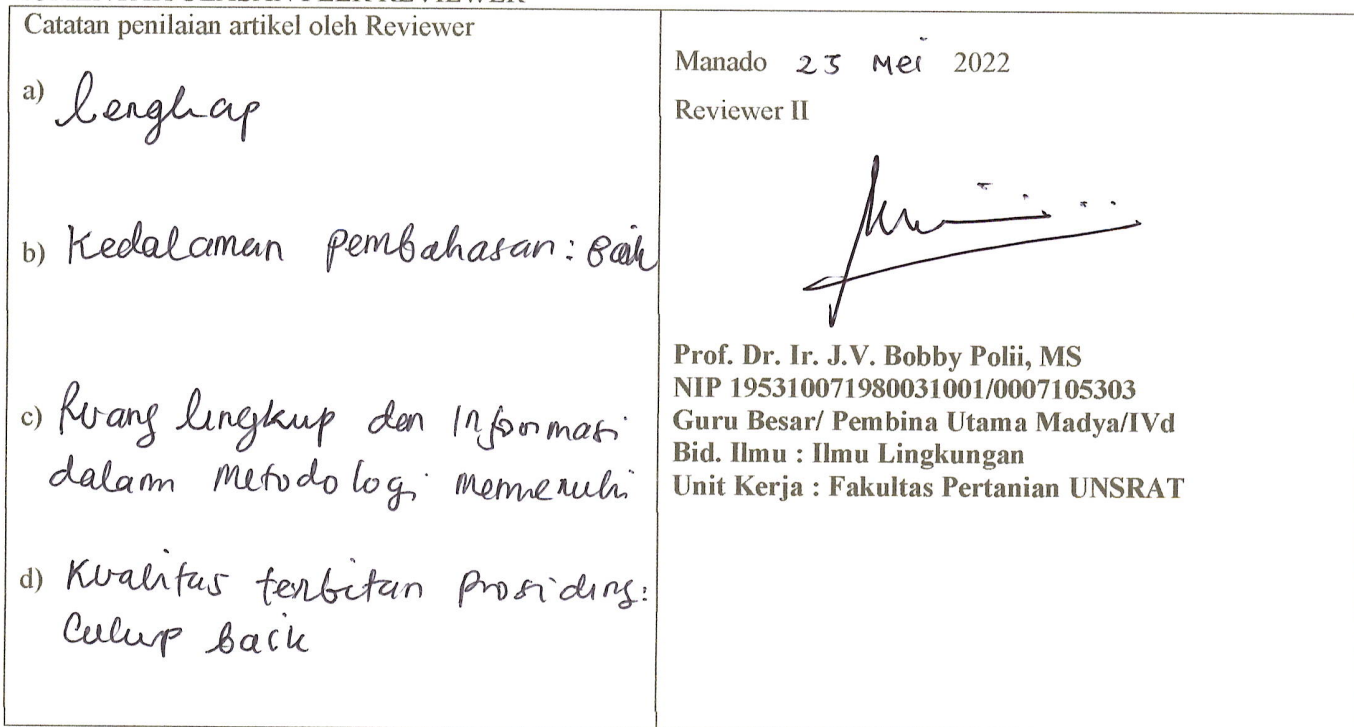 Catatan penilaian artikel oleh Reviewer
a) lengkap
b) Kedalaman pembahasan: Baik
c) Ruang lingkup dan Informasi
dalam metodologi memenuhi
d) Kualitas terbitan prosiding:
Cukup baik
Manado 25 Mei 2022
Reviewer II
Prof. Dr. Ir. J.V. Bobby Polii, MS
NIP 195310071980031001/0007105303
Guru Besar/ Pembina Utama Madya/IVd
Bid. Ilmu : Ilmu Lingkungan
Unit Kerja : Fakultas Pertanian UNSRAT